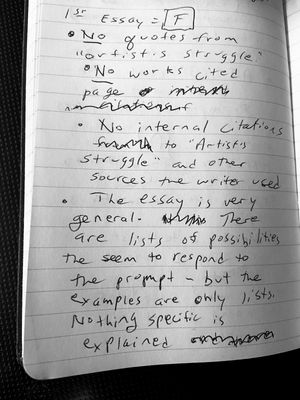 1st Essay = F
• No quotes from
"artist's struggle."
• No works cited
page
• No internal citations
to "Artist's
struggle" and other
sources the writer used
• The essay is very
general. There
are lists of possibilities
the seem to respond to
the prompt - but the
examples are only lists.
Nothing specific is
explained